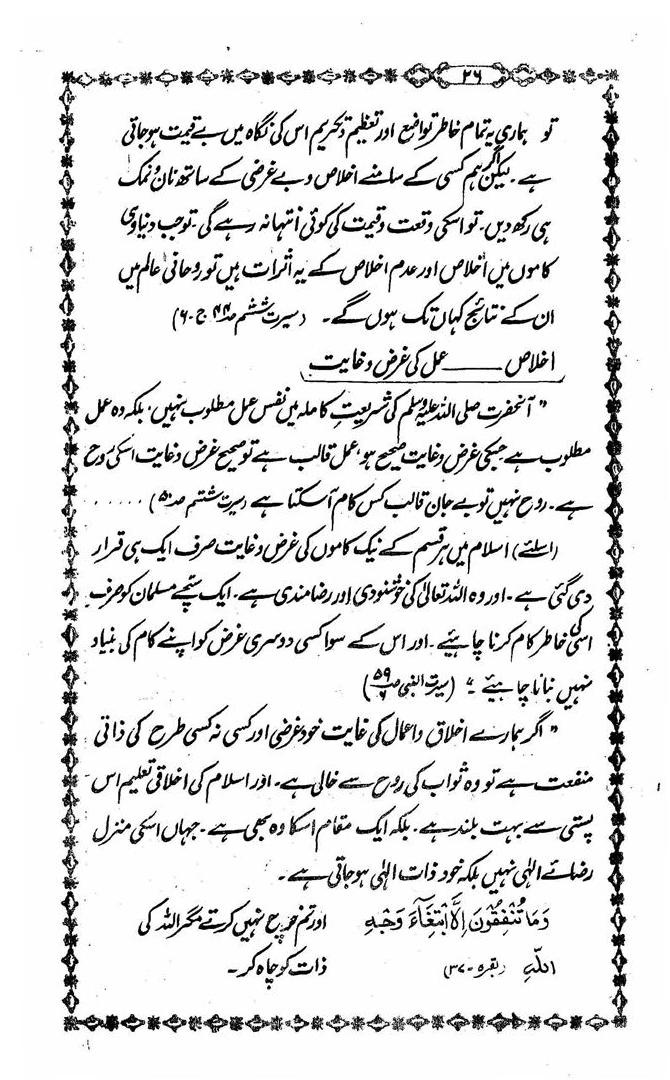 ۲۶
تو ہماری یہ تمام خاطر تواضع اور تعظیم و تکریم اس کی نگاہ میں بے قیمت ہو جاتی
ہے۔ لیکن اگر ہم کسی کے سامنے اخلاص و بے غرضی کے ساتھ نان و نمک
ہی رکھ دیں۔ تو اسکی وقعت و قیمت کی کوئی انتہا نہ رہے گی۔ تو جب دنیاوی
کاموں میں اخلاص اور عدم اخلاص کے یہ اثرات ہیں تو روحانی عالم میں
ان کے نتائج کہاں تک ہوں گے۔ (سیرت ششم صـ ۴۴ ج۔۶)
اخلاص ــــــ عمل کی غرض و غایت
" آنحضرت صلی اللہ علیہ وسلم کی شریعتِ کاملہ میں نفس عمل مطلوب نہیں، بلکہ وہ عمل
مطلوب ہے جسکی غرض و غایت صحیح ہو، عمل قالب ہے تو صحیح غرض و غایت اسکی روح
ہے۔ روح نہیں تو بے جان قالب کس کام آ سکتا ہے (سیرت ششم صـ ) .....
(اسلئے) اسلام میں ہر قسم کے نیک کاموں کی غرض و غایت صرف ایک ہی قرار
دی گئی ہے۔ اور وہ اللہ تعالیٰ کی خوشنودی اور رضامندی ہے۔ ایک سچے مسلمان کو صرف
اسی کی خاطر کام کرنا چاہیئے۔ اور اس کے سوا کسی دوسری غرض کو اپنے کام کی بنیاد
نہیں بنانا چاہیئے ۔" (سیرت النبی صـ ۵۹)
" اگر ہمارے اخلاق و اعمال کی غایت خود غرضی اور کسی نہ کسی طرح کی ذاتی
منفعت ہے تو وہ ثواب کی روح سے خالی ہے۔ اور اسلام کی اخلاقی تعلیم اس
پستی سے بہت بلند ہے۔ بلکہ ایک مقام اسکا وہ بھی ہے۔ جہاں اسکی منزل
رضائے الٰہی نہیں بلکہ خود ذات الٰہی ہو جاتی ہے۔
وَمَا تُنْفِقُونَ اِلَّا ابْتِغَآءَ وَجْهِ اور تم خرچ نہیں کرتے مگر اللہ کی
اللّٰہِ (بقرہ-۳۷) ذات کو چاہ کر۔